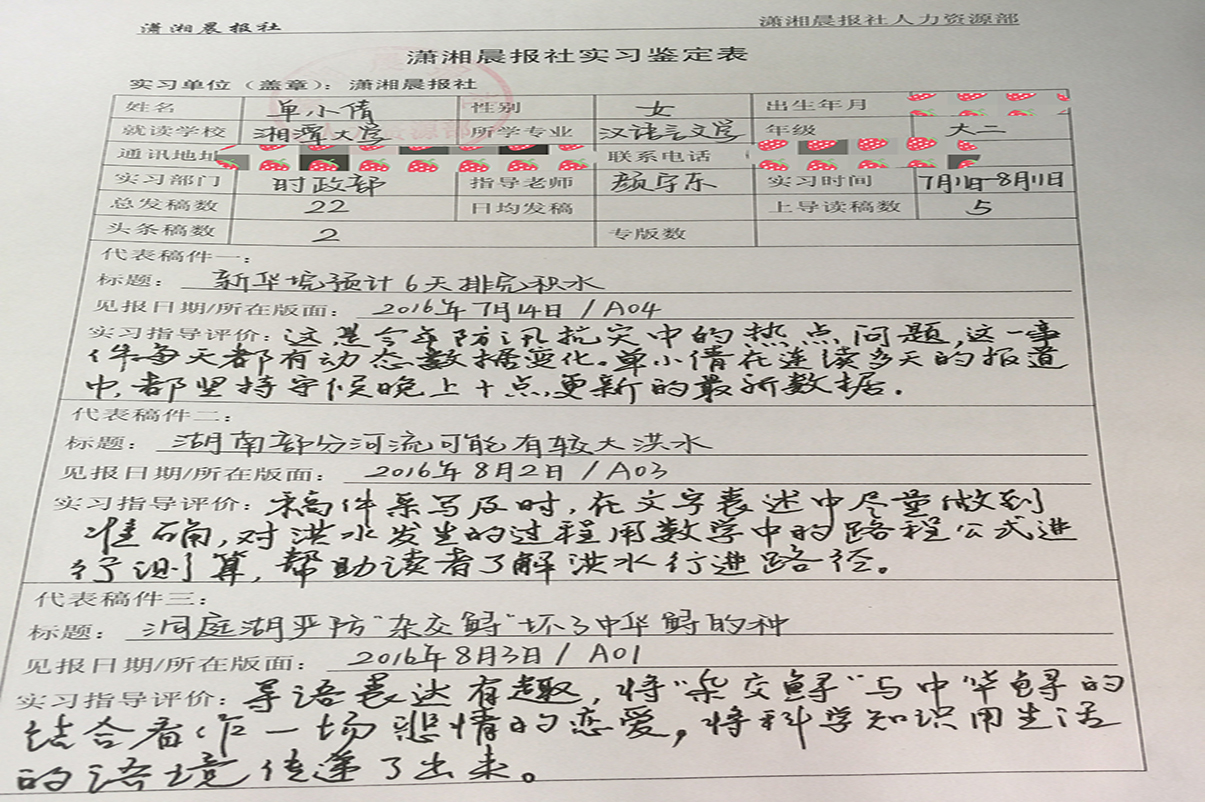 潇湘晨报社 潇湘晨报社人力资源部
潇湘晨报社实习鉴定表
实习单位（盖章）：潇湘晨报社
姓名 单小倩 性别 女 出生年月
就读学校 湘潭大学 所学专业 汉语言文学 年级 大二
通讯地址 联系电话
实习部门 时政部 指导老师 颜宇东 实习时间 7月11日-8月11日
总发稿数 22 日均发稿 上导读稿数 5
头条稿数 2 专版数
代表稿件一：
标题：新华垸预计6天排完积水
见报日期/所在版面：2016年7月14日/A04
实习指导评价：这是今年防汛抗灾中的热点问题，这一事
件每天都有动态数据变化。单小倩在连续多天的报道
中，都坚持守候晚上十点更新的最新数据.
代表稿件二：
标题：湖南部分河流可能有较大洪水
见报日期/所在版面：2016年8月2日/A03
实习指导评价：稿件采写及时，在文字表述中尽量做到
准确，对洪水发生的过程用数学中的路程公式进
行测算，帮助读者了解洪水行进路径。
代表稿件三：
标题：洞庭湖严防“杂交鲟”坏了中华鲟的种
见报日期/所在版面：2016年8月3日/A01
实习指导评价：导语表达有趣，将“杂交鲟”与中华鲟的
结合看作一场悲情的恋爱，将科学知识用生活
的语境传递了出来。